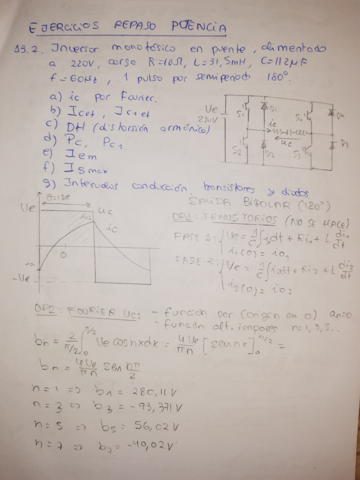 EJERCICIOS REPASO POTENCIA
13.2. Inversor monofásico en puente, alimentado
a 220V, carga R=10Ω, L=31,5mH, C=112μF
f=60Hz, 1 pulso por semiperiodo 180°.
a) ic por Fourier.
b) Icef, Ic1ef
c) DH (distorsión armónica)
d) Pc, Pc1
e) Iem
f) Ismax
g) Intervalos conducción, transistores y diodos
Ve
220V
ic
uc
SALIDA BIPOLAR (180°)
OP1: TRANSITORIOS (NO SE HACE)
FASE 1: { Ve = 1/C ∫idt + Ri1 + L di1/dt
i1(0) = i0
FASE 2: { Ve = 1/C ∫idt + Ri2 + L di2/dt
i2(0) = i0
Ve
uc
ic
0
-Ve
OP2: FOURIER Uc: - función par (origen en 0) an=0
- función alt. impares n=1, 3, 5..
bn = 2/π/2 ∫0 π/2 Ve cos nx dx = 4Ve/πn [sen nx]0 π/2 =
bn = 4Ve/πn sen nπ/2
n=1 => b1 = 280,11V
n=3 => b3 = -93,371V
n=5 => b5 = 56,02V
n=7 => b7 = -40,02V